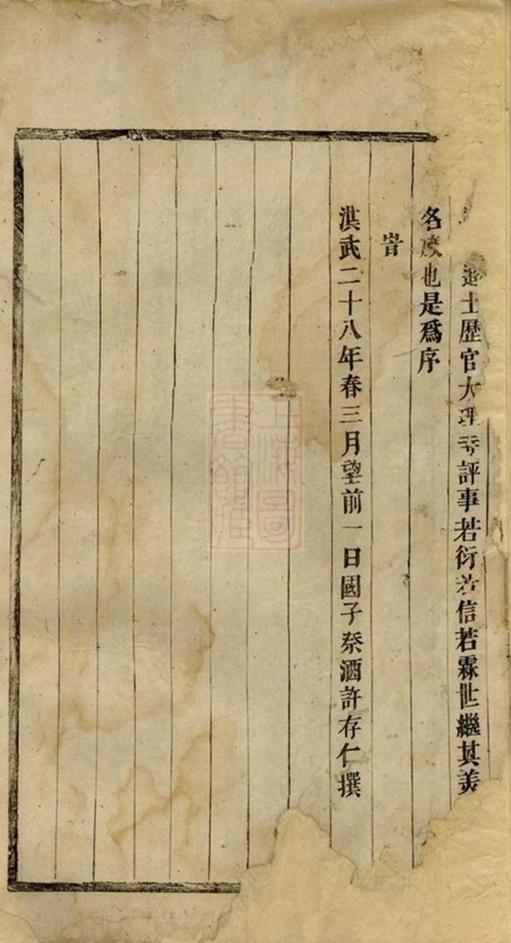 進士歴官大理寺評事若衍若信若霖世繼其美
名宬也是爲序
旹
洪武二十八年春三月望前一日國子祭酒許存仁撰
上海圖書館藏